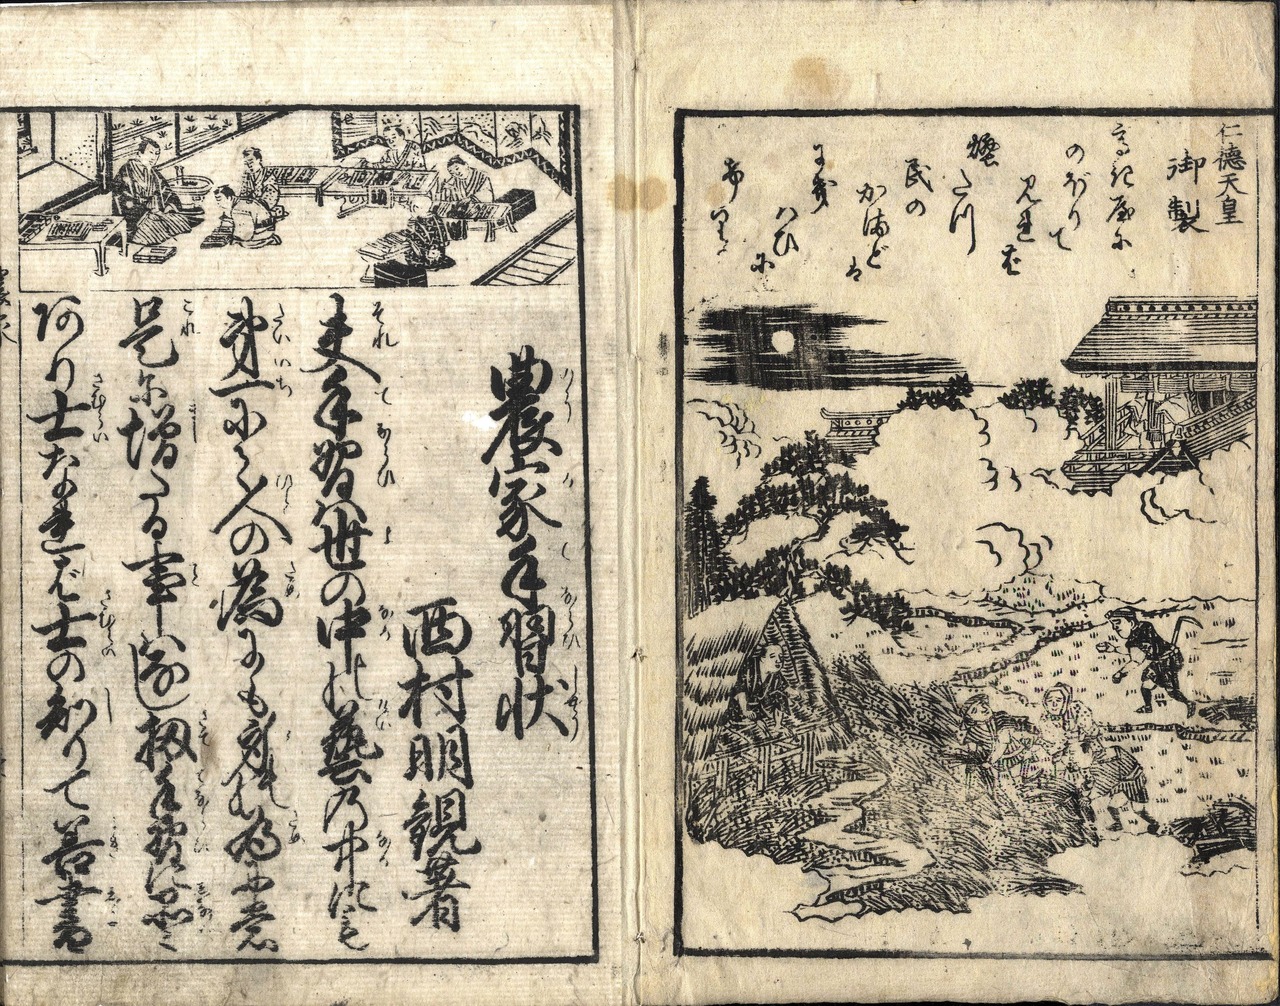 仁徳天皇
御製
高き屋に
のぼりて
見れば
煙たつ
民の
かまどは
にぎ
はひに
けり
農家手習状
西村明観著
夫手習は世の中の藝乃中にも
第一に人の為にも身の為に
是に増る事なし扨手習に品々
阿り士なれば士の知りて善書